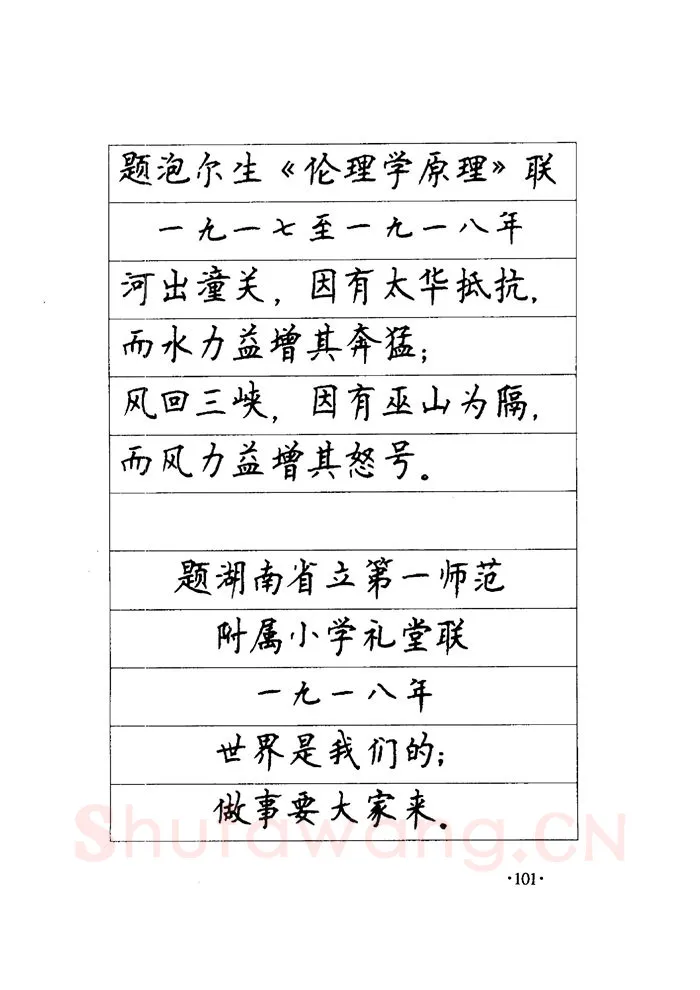 题泡尔生《伦理学原理》联
一九一七至一九一八年
河出潼关，因有太华抵抗，
而水力益增其奔猛；
风回三峡，因有巫山为隔，
而风力益增其怒号。
题湖南省立第一师范
附属小学礼堂联
一九一八年
世界是我们的；
做事要大家来。
Shufawang.CN
·101·